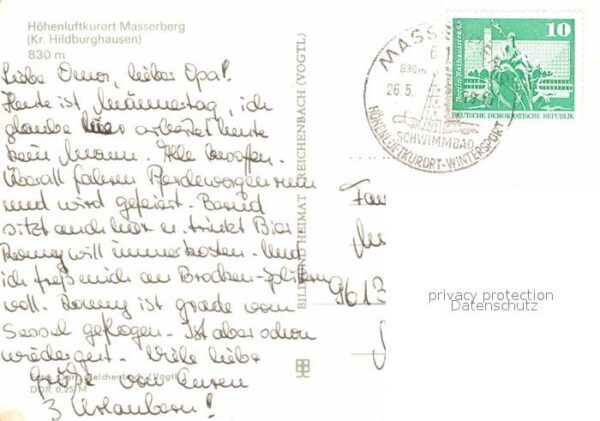 Höhenluftkurort Masserberg
(Kr. Hildburghausen)
830 m
Liebe Oma, lieber Opa!
Heute ist Männertag, ich
glaube hier arbeitet heute
kein Mann. Alle besoffen.
Überall fahren Pferdewagen rum
und wird gefeiert. Bernd
sitzt auch hier u. trinkt Bier
Ronny will immer kosten. Und
ich freß mich an Brocken-Splittern
voll. Ronny ist grade vom
Sessel geflogen. Ist aber schon
wieder gut. Viele liebe
Grüße von Euren
3 Urlaubern!
Reichenbach (Vogtl)
DDR 0,25 M
BILD UND HEIMAT REICHENBACH (VOGTL)
MASSE
830m
26.5.
SCHWIMMBAD
HÖHENLUFTKURORT-WINTERSPORT
10
Berlin-Rathausstraße
DEUTSCHE DEMOKRATISCHE REPUBLIK
Fam
9613
privacy protection
Datenschutz